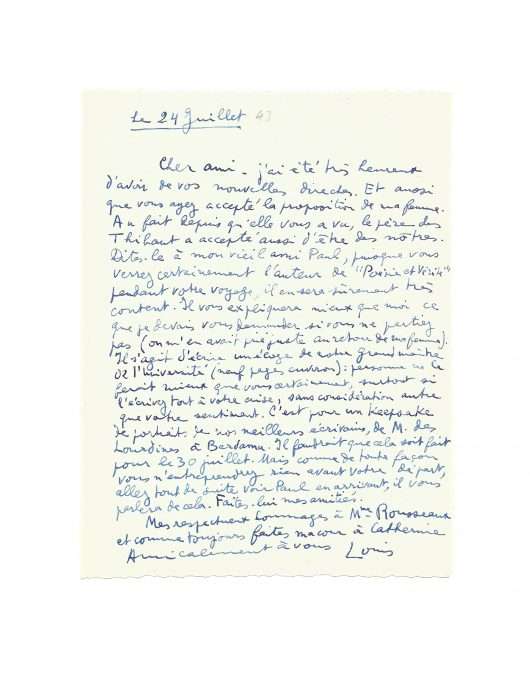 Le 24 Juillet 43
Cher ami - j'ai été très heureux
d'avoir de vos nouvelles directes. Et aussi
que vous ayez accepté la proposition de ma femme.
Au fait depuis qu'elle vous a vu, le père des
Thibaut a accepté aussi d'être des nôtres.
Dites-le à mon vieil ami Paul, puisque vous
verrez certainement l'auteur de "Poésie et Vérité"
pendant votre voyage, il en sera sûrement très
content. Il vous expliquera mieux que moi ce
que je devais vous demander si vous ne partiez
pas (on m'en avait prié juste au retour de ma femme).
Il s'agit d'écrire un éloge de notre grand maître
de l'Université (neuf pages environ): personne ne le
ferait mieux que vous certainement, surtout si
l'écrivez tout à votre aise, sans considération autre
que votre sentiment. C'est pour un Keepsake
de portraits de nos meilleurs écrivains, de M. des
Lourdines à Bardamu. Il faudrait que cela soit fait
pour le 30 juillet. Mais comme de toute façon
vous n'entreprendrez rien avant votre départ,
allez tout de suite voir Paul en arrivant, il vous
parlera de cela. Faites-lui mes amitiés.
Mes respectueux hommages à Mme Rousseaux
et comme toujours faites ma cour à Catherine
Amicalement à vous Louis